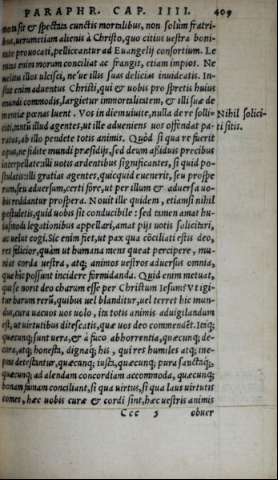 PARAPHR. CAP. IIII. 409
mota sit et spectata cunctis mortalibus, non solùm fratri-
bus, uerumetiam alienis à Christo, quo citius uestra boni-
tate prouocati, pelliceantur ad Euangelij consortium. Le
nitas enim morum conciliat ac frangit, etiam impios. Ne
uelitis illos ulcisci, ne'ue illis suas delicias inuideatis. In-
stat enim aduentus Christi, qui & uobis pro spretis huius
mundi commodis, largietur immortalitatem, & illi suæ de-
mentiæ pœnas luent. Vos in diem uiuite, nulla de re solli-
citi, tantū illud agentes, ut ille adueniens uos offendat pa-
ratos, ab illo pendete totis animis. Quòd si qua re fuerit
Nihil solici-
ti sitis.
opus, ne fidite mundi præsidijs, sed deum assiduis precibus
interpellate: illi uotis ardentibus significantes, si quid po-
stulatis: illi gratias agentes, quicquid euenerit, seu prospe
rum, seu aduersum, certi fore, ut per illum & aduersa uo-
bis reddantur prospera. Nouit ille quidem, etiamsi nihil
postuletis, quid uobis sit conducibile: sed tamen amat hu-
iusmodi legationibus appellari, amat pijs uotis solicitari,
ac uelut cogi. Sic enim fiet, ut pax qua cōciliati estis deo,
res felicior, quàm ut humana mens queat percipere, mu-
niat corda uestra, atq; animos uestros aduersus omnia,
quæ hîc possunt incidere formidanda. Quid enim metuat,
qui se norit deo charum esse per Christum Iesum? Vt igi-
tur harum rerū, quibus uel blanditur, uel terret hic mun-
dus, cura uacuos uos uolo, ita totis animis aduigilandum
est, ut uirtutibus ditescatis, quæ uos deo commendēt. Itaq;
quæcunq; sunt uera, & à fuco abhorrentia, quæcunq; de-
cora, atq; honesta, dignaq; his, qui res humiles atq; ine-
ptas detestantur, quæcunq; iusta, quæcunq; pura sanctaq;,
quæcunq; ad alendam concordiam accommoda, quæcunq;
bonam famam conciliant, si qua uirtus, si qua laus uirtutis
comes, hæc uobis curæ & cordi sint, hæc uestris animis
Ccc 5 obuer